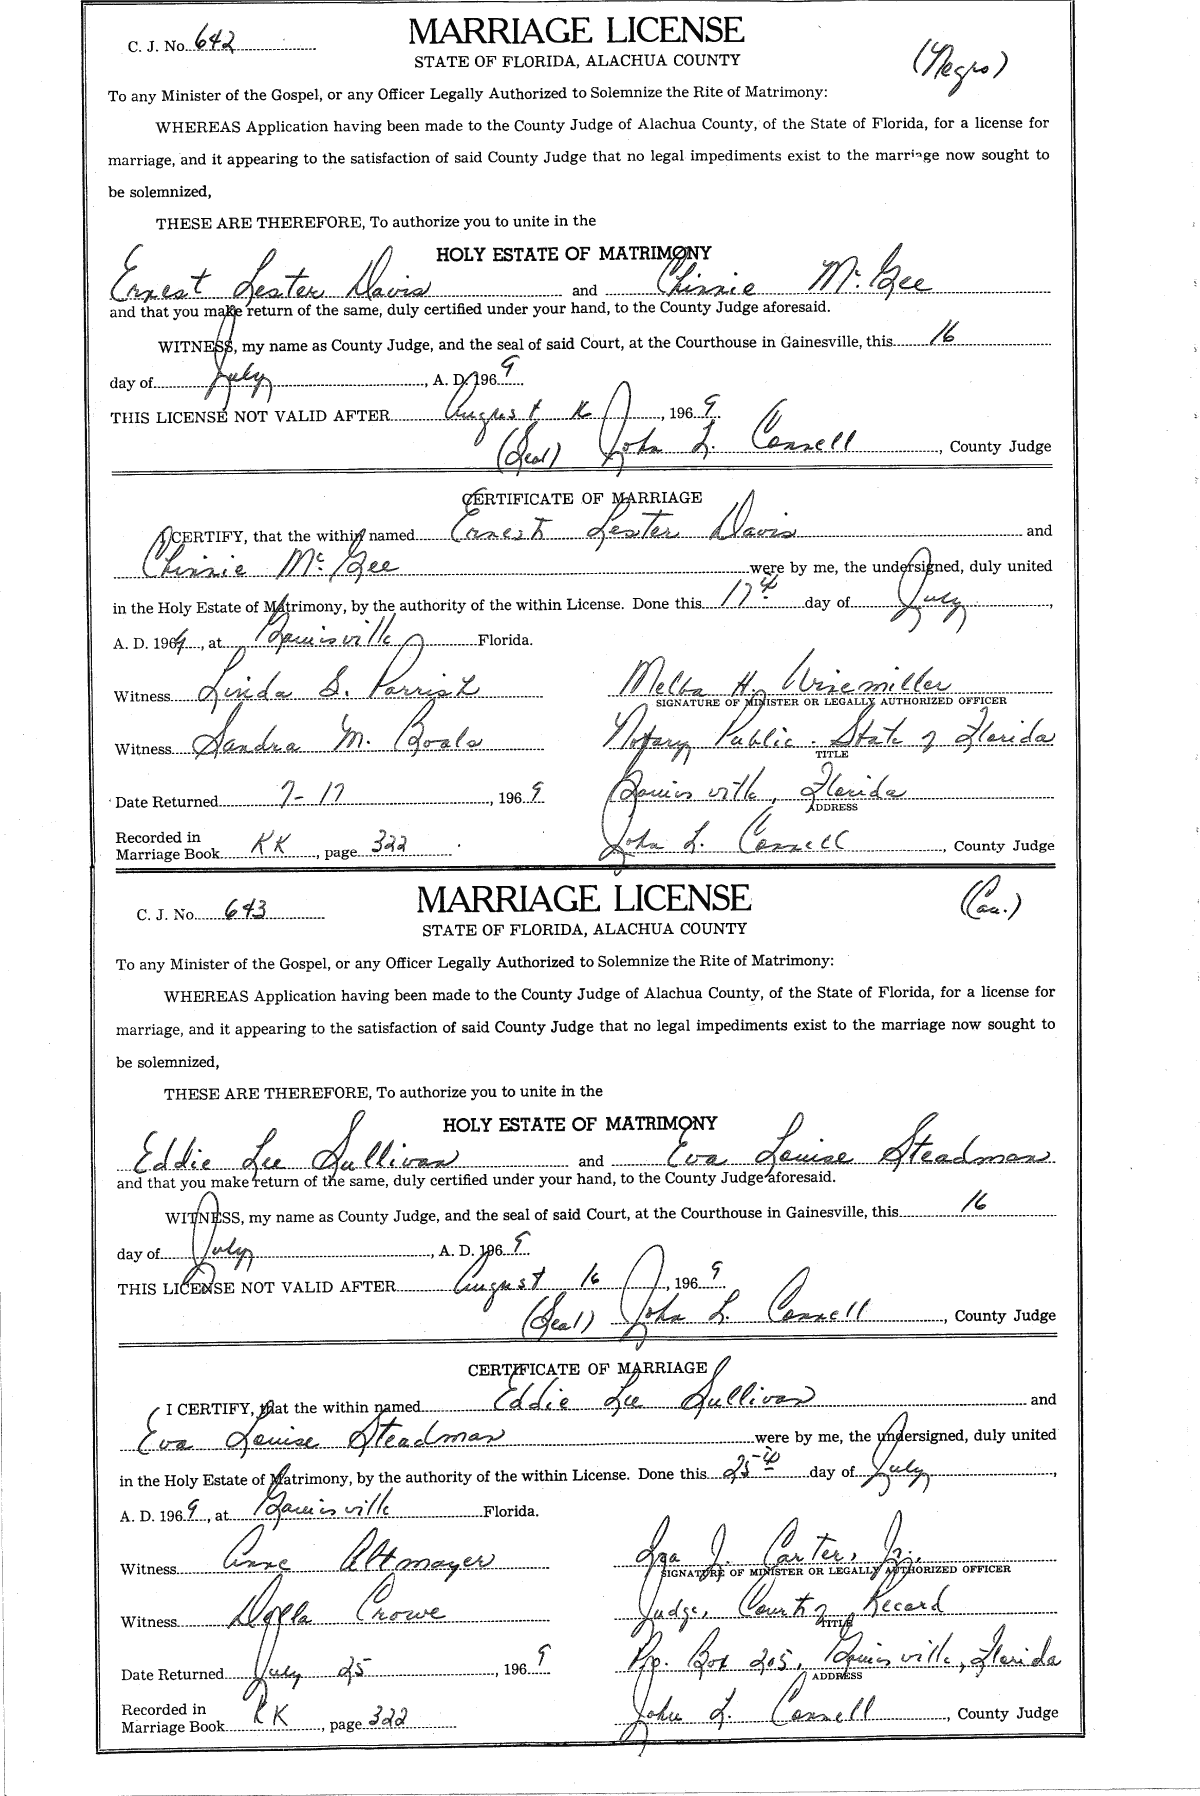 C. J. No. 642
MARRIAGE LICENSE
(Negro)
STATE OF FLORIDA, ALACHUA COUNTY
To any Minister of the Gospel, or any Officer Legally Authorized to Solemnize the Rite of Matrimony:
WHEREAS Application having been made to the County Judge of Alachua County, of the State of Florida, for a license for
marriage, and it appearing to the satisfaction of said County Judge that no legal impediments exist to the marriage now sought to
be solemnized,
THESE ARE THEREFORE, To authorize you to unite in the
HOLY ESTATE OF MATRIMONY
Ernest Lester Davis and Chinnie McGee
and that you make return of the same, duly certified under your hand, to the County Judge aforesaid.
WITNESS, my name as County Judge, and the seal of said Court, at the Courthouse in Gainesville, this 16
day of July, A. D. 1969
THIS LICENSE NOT VALID AFTER August 16, 1969
(Seal) John L. Connell, County Judge
CERTIFICATE OF MARRIAGE
I CERTIFY, that the within named Ernest Lester Davis and
Chinnie McGee were by me, the undersigned, duly united
in the Holy Estate of Matrimony, by the authority of the within License. Done this 17th day of July,
A. D. 1969, at Gainesville Florida.
Witness Linda S. Parrish Melba H. Winemiller
SIGNATURE OF MINISTER OR LEGALLY AUTHORIZED OFFICER
Witness Sandra M. Boals Notary Public - State of Florida
TITLE
Date Returned 7-17, 1969 Gainesville, Florida
ADDRESS
Recorded in
Marriage Book KK, page 322 John L. Connell, County Judge
C. J. No. 643
MARRIAGE LICENSE
(Cau.)
STATE OF FLORIDA, ALACHUA COUNTY
To any Minister of the Gospel, or any Officer Legally Authorized to Solemnize the Rite of Matrimony:
WHEREAS Application having been made to the County Judge of Alachua County, of the State of Florida, for a license for
marriage, and it appearing to the satisfaction of said County Judge that no legal impediments exist to the marriage now sought to
be solemnized,
THESE ARE THEREFORE, To authorize you to unite in the
HOLY ESTATE OF MATRIMONY
Eddie Lee Sullivan and Eva Louise Steadman
and that you make return of the same, duly certified under your hand, to the County Judge aforesaid.
WITNESS, my name as County Judge, and the seal of said Court, at the Courthouse in Gainesville, this 16
day of July, A. D. 1969
THIS LICENSE NOT VALID AFTER August 16, 1969
(Seal) John L. Connell, County Judge
CERTIFICATE OF MARRIAGE
I CERTIFY, that the within named Eddie Lee Sullivan and
Eva Louise Steadman were by me, the undersigned, duly united
in the Holy Estate of Matrimony, by the authority of the within License. Done this 25th day of July,
A. D. 1969, at Gainesville Florida.
Witness Anne Altmayer Ira J. Carter, Jr.
SIGNATURE OF MINISTER OR LEGALLY AUTHORIZED OFFICER
Witness Crowe Judge, Court of Record
TITLE
Date Returned July 25, 1969 P.O. Box 205, Gainesville, Florida
ADDRESS
Recorded in
Marriage Book KK, page 322 John L. Connell, County Judge